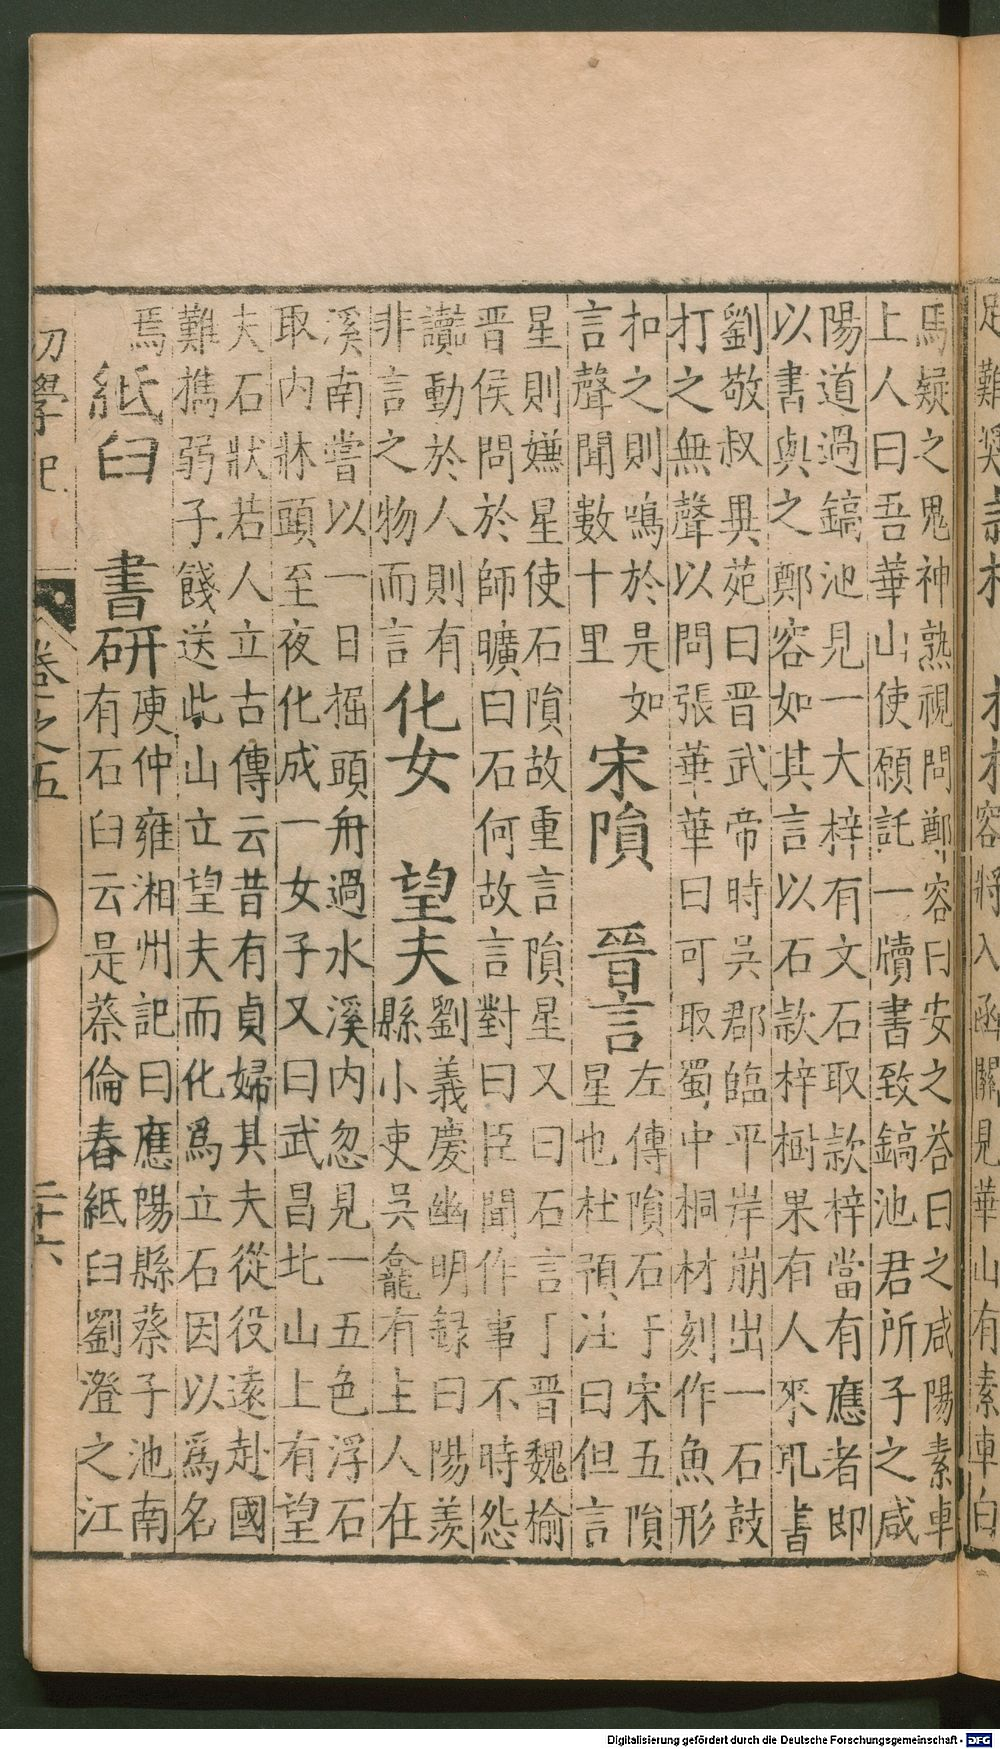 馬疑之鬼神熟視問鄭容曰安之荅曰之咸陽素車
上人曰吾華山使願託一牘書致鎬池君所子之咸
陽道過鎬池見一大梓有文石取款梓當有應者即
以書與之鄭容如其言以石款梓樹果有人來取書
劉敬叔異苑曰晋武帝時吳郡臨平岸崩出一石鼓
打之無聲以問張華華曰可取蜀中桐材刻作魚形
扣之則鳴於是如
言聲聞數十里
宋隕 晉言
左傳隕石于宋五隕
星也杜預注曰但言
星則嫌星使石隕故重言隕星又曰石言丁晋魏榆
晋侯問於師曠曰石何故言對曰臣聞作事不時怨
讟動於人則有
非言之物而言
化女 望夫
劉義慶幽明録曰陽羨
縣小吏吳龕有主人在
溪南嘗以一日掘頭舟過水溪内忽見一五色浮石
取内牀頭至夜化成一女子又曰武昌北山上有望
夫石狀若人立古傳云昔有貞婦其夫從役遠赴國
難攜弱子餞送此山立望夫而化爲立石因以爲名
焉
紙臼 書研
庾仲雍湘州記曰應陽縣蔡子池南
有石臼云是蔡倫舂紙臼劉澄之江
初學記 卷之五 二十六
容將入函關見華山有素車白
Digitalisierung gefördert durch die Deutsche Forschungsgemeinschaft - DFG